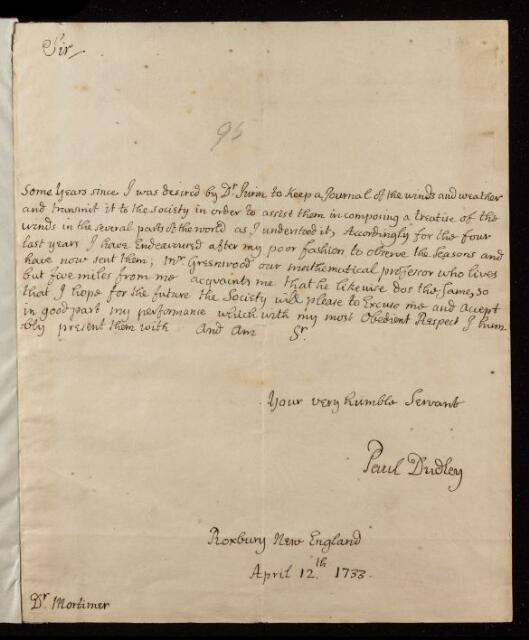 Sir
95
Some Years since I was desired by Dr. Jurin to keep a Journal of the winds and weather
and transmit it to the society in order to assist them in composing a treatise of the
winds in the several parts of the world as I understood it, Accordingly for the four
last years I have Endeavoured after my poor fashion to observe the Seasons and
have now sent them; Mr. Greenwood our mathematical professor who lives
but five miles from me acquaints me that he likewise dos the same, so
that I hope for the future the Society will please to Excuse me and Accept
in good part my performance which with my most Obedient Respect I hum
bly present them with And Am Sr.
Your very humble Servant
Paul Dudley
Roxbury New England
April 12.th 1733.
Dr. Mortimer